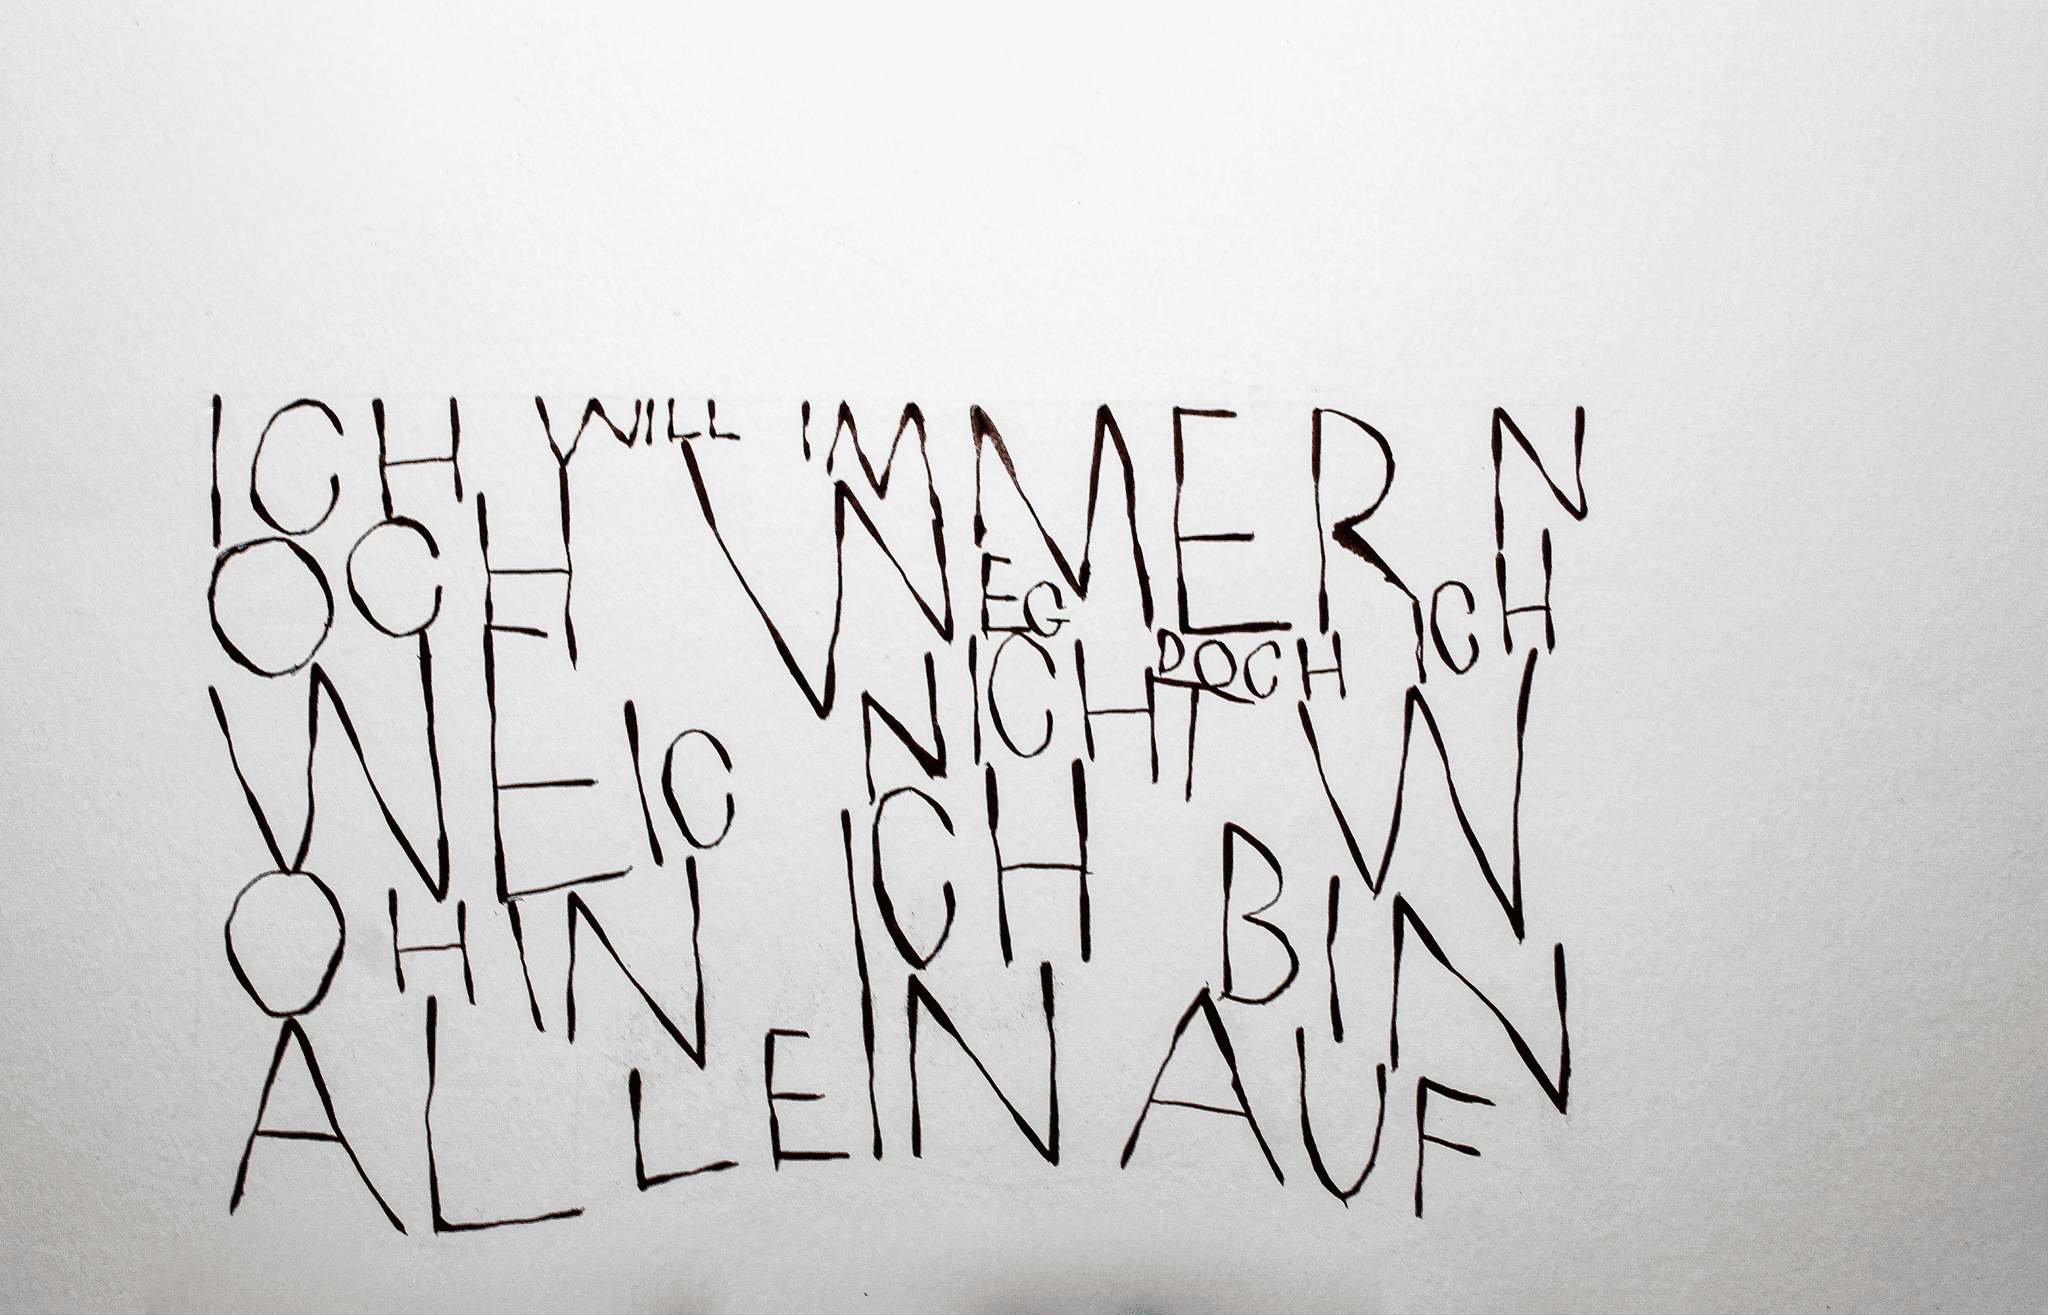 ICH WILL IMMER N
OCH WEG DOCH ICH
WEIC NICHT W
OHIN ICH BIN
ALLEIN AUF